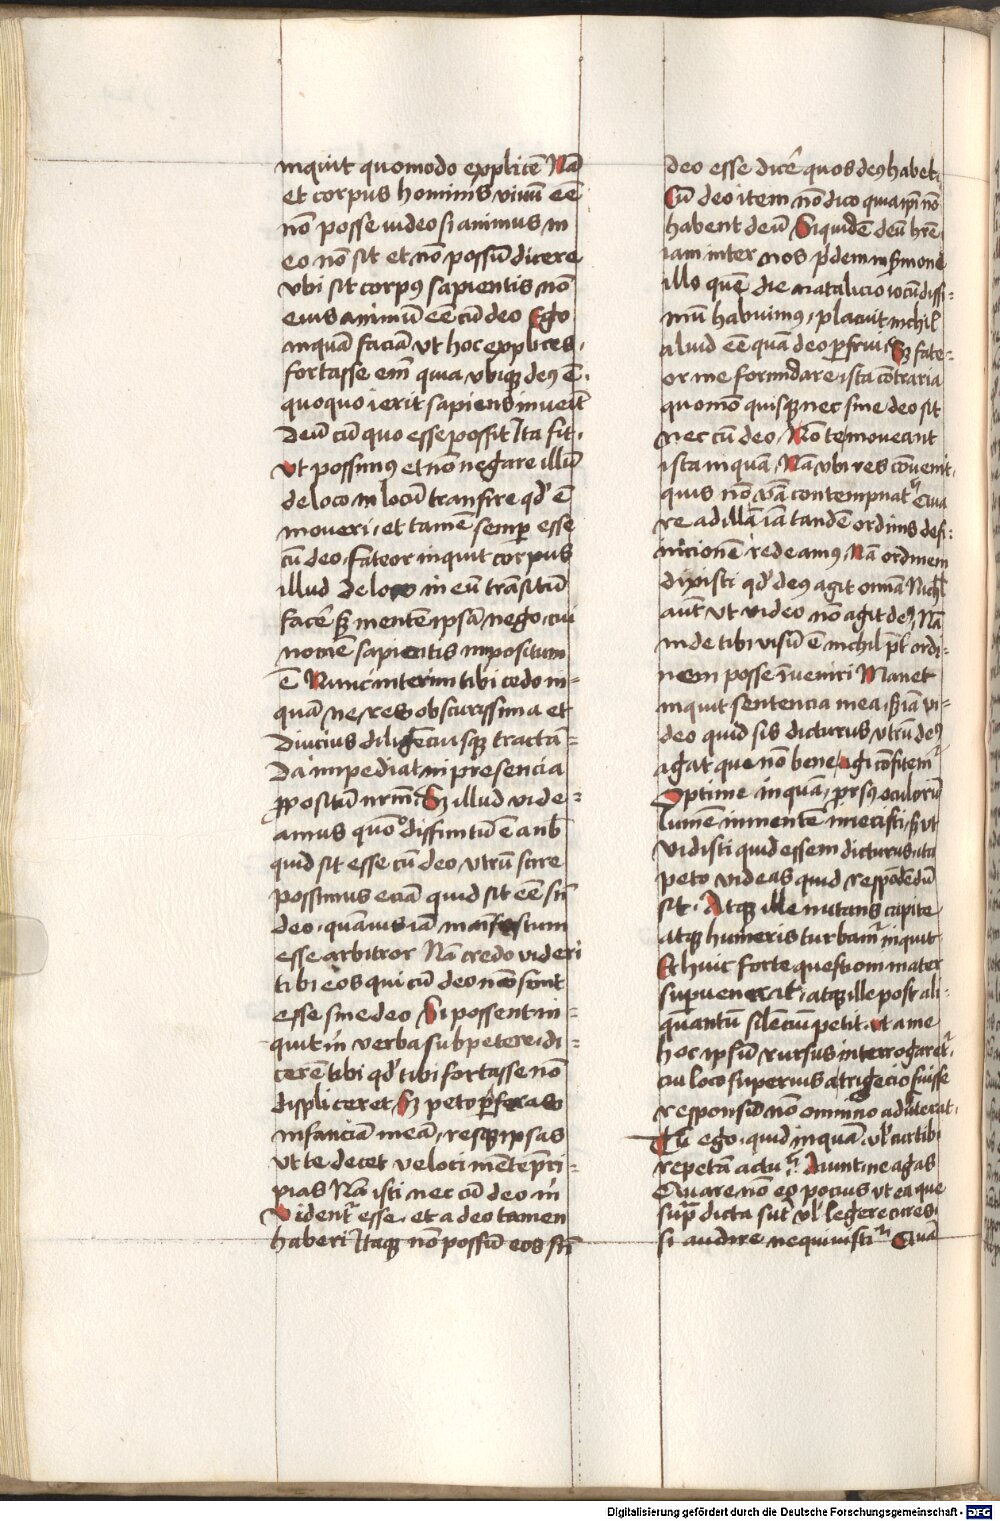 inquit quomodo explicē Nā
et corpus hominis viuū eē
nō posse uideo si animus in
eo nō sit et nō possū dicere
vbi sit corpꝰ sapientis nō
eius animū eē cū deo Ego
inquā faciā vt hoc explices.
fortasse em̄ quia vbiqꝫ deꝰ ē.
quoquo ierit sapiens inueīt
deū cū quo esse possit Ita fit.
vt possimꝰ et nō negare illū
de loco in locū transire qd̓ ē
moueri. et tamē semꝑ esse
cū deo. fateor inquit corpus
illud de loco in eū trāsitū
facē sꝫ mentē ipsā nego. cui
nomē sapientis impositum
ē Nunc interim tibi cedo in=
quā ne res obscurissima et
diucius diligēciusqꝫ tractā=
da impediat in presencia
ꝓpositū nrm̄ Sꝫ illud vide=
amus quō diffinitū ē a nob̄
quid sit esse cū deo vtrū scire
possimus eciā quid sit eē sn̄
deo. quāuis iā manifestum
esse arbitror Nā credo videri
tibi eos qui cū deo nō sunt
esse sine deo Si possent in=
quit in verba subpetere. di=
cerē tibi qd̓ tibi fortasse nō
displiceret Sꝫ peto ꝑferas
infanciā meā. resqꝫ ipsas
vt te decet veloci mēte p̄ri=
pias Nā isti nec cū deo m̄
vident̄ esse. et a deo tamen
haberi Itaqꝫ nō possū eos sn̄
deo esse dicē quos deꝰ habet.
Cū deo item nō dico quia ip̄i nō
habent deū Siquidē deū hr̄e
iam inter nos p̄dem in s̄mone
illo quē die natalicio iocūdissi=
mū habuimꝰ. placuit nichil
aliud eē quā deo ꝑfrui Sꝫ fate=
or me formidare ista cōtraria
quomō quisqꝫ nec sine deo sit
nec cū deo. Nō te moueant
ista inquā. Nā vbi res cōuenit.
quis nō v̄ba contempnat Qua
re ad illā iā tandē ordinis defi=
nicionē redeamꝰ. Nā ordinem
dixisti qd̓ deꝰ agit omā Nichil
aūt vt video nō agit deꝰ. Nā
inde tibi visū ē nichil p̄t ordi=
nem posse īueniri Manet
inquit sentencia mea. sꝫ iā vi=
deo quid sis dicturus. vtrū deꝰ
agat que nō bene agi cōfitem̄
Optime inquā. ꝓrsꝰ oculorū
lumē in mentē iniecisti. sꝫ vt
vidisti quid essem dicturus. ita
peto videas quid respōdēdū
sit. Atqꝫ ille nutans capite
atqꝫ humeris turbam̄ inquit.
Et huic forte questioni mater
supuenerat. atqꝫ ille post ali=
quantū silēciū petit. vt a me
hoc ip̄sū rursus interrogaret̄.
cui loco superius a trigecio fuisse
responsū nō omnino aduerterat.
Tū ego. quid inquā. vl̓ cur tibi
repetā actū Aiunt. ne agas
Quare nō eo pocius vt ea que
sup̄ dicta sūt vl̓ legere cures.
si audire nequiuisti Quā
Digitalisierung gefördert durch die Deutsche Forschungsgemeinschaft - DFG